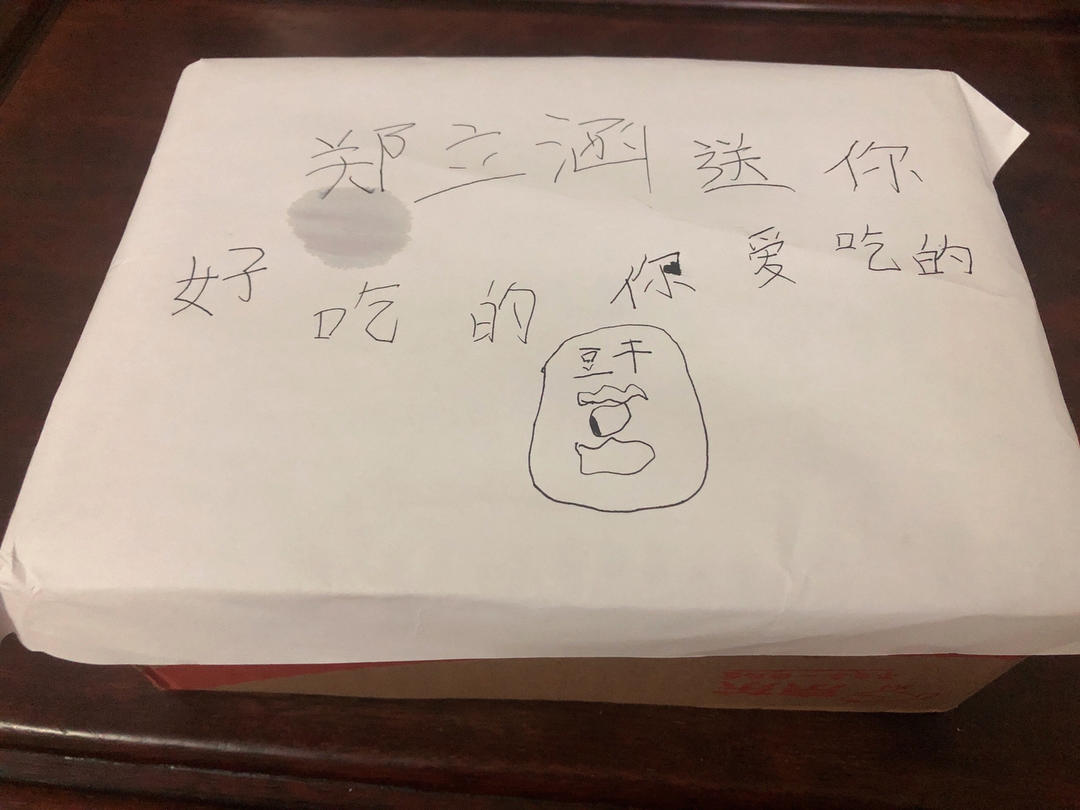 郑立涵送你
好吃的你爱吃的
豆干